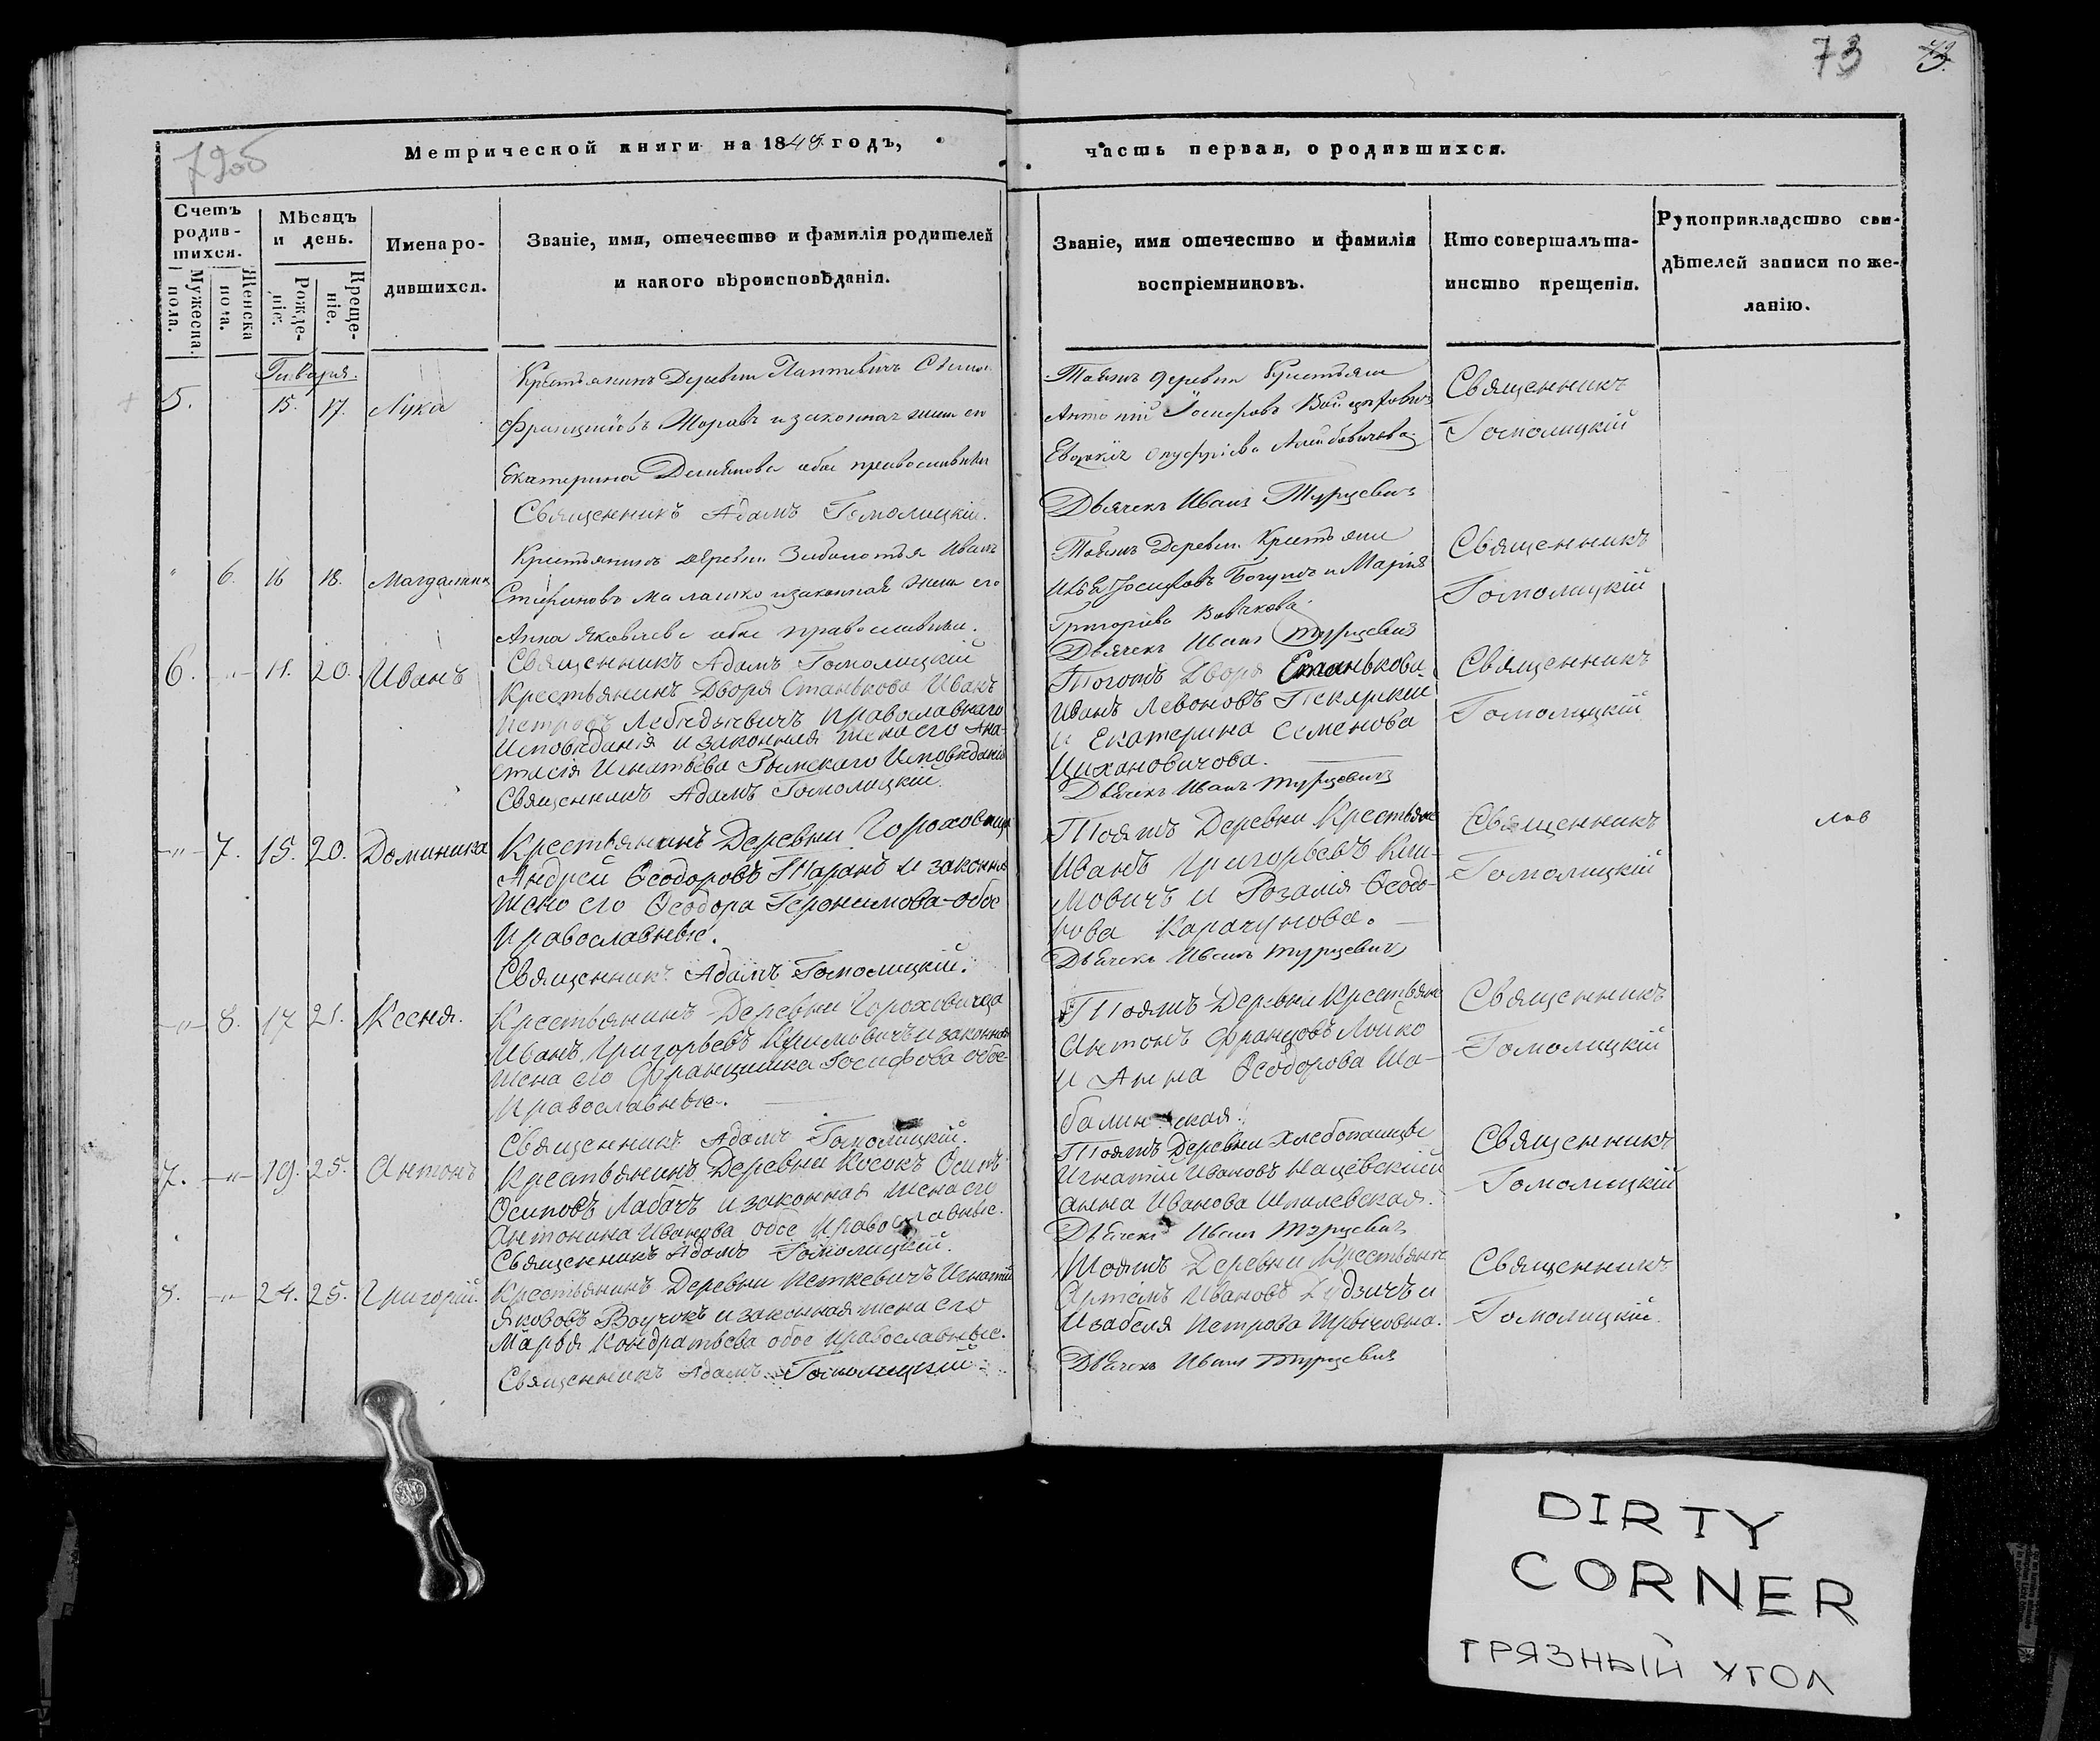 73
72об
Метрической книги на 1848 годъ,
часть первая, о родившихся.
Счетъ родив-шихся.
Мужеска. пола.
Женска пола.
Мѣсяцъ и день.
Рожде-ніе.
Креще-ніе.
Имена ро-дившихся.
Званіе, имя, отечество и фамилія родителей
и какого вѣроисповѣданія.
Званіе, имя отечество и фамилія
воспріемниковъ.
Кто совершалъ та-
инство крещенія.
Рукоприкладство сви-
дѣтелей записи по же-
ланію.
Генваря.
5. 15. 17. Лука
Крестьянинъ Деревни
Францевъ и законная жена его
Екатерина Демьянова обое православныи
Священникъ Адамъ Гомолицкій.
Тояжъ деревни Крестьяни
Антоній Іосифовъ
Евдокія Онуфріева
Дьячекъ Иванъ Турцевичъ
Священникъ
Гомолицкій
" 6. 16 18. Магдалина
Крестьянинъ деревни Заболотья Иванъ
Стефановъ Малашко и законная жена его
Анна Яковлева обое православныи.
Священникъ Адамъ Гомолицкій
Тояжъ Деревни Крестьяни
Іосифовъ и Марія
Григорьева
Дьячекъ Иванъ Турцевичъ
Священникъ
Гомолицкій
6. -"- 11. 20. Иванъ
Крестьянинъ Двора Станькова Иванъ
Петровъ Лебедьевичъ Православнаго
Исповѣданія и законная жена его Ана-
стасія Игнатьева Римскаго Исповѣданія
Священникъ Адамъ Гомолицкій.
Тогожъ Двора Станькова
Иванъ Левоновъ
и Екатерина Семенова
Цихановичова.
Дьячекъ Иванъ Турцевичъ
Священникъ
Гомолицкій
-"- 7. 15. 20. Доминика
Крестьянинъ Деревни Гороховища
Андрей Ѳеодоровъ Таранъ и законная
жена его Ѳеодора Геронимова обое
Православные.
Священникъ Адамъ Гомолицкій.
Тояжъ Деревни Крестьяне
Иванъ Григорьевъ Кли-
мовичъ и Розалія Ѳеодо-
рова Карачунова.
Дьячекъ Иванъ Турцевичъ
Священникъ
Гомолицкій
-"- 8. 17 21. Ксеня.
Крестьянинъ Деревни Гороховища
Иванъ Григорьевъ Климовичъ и законная
жена его Францишка Іосифова обое
Православные.
Священникъ Адамъ Гомолицкій.
Тояжъ Деревни Крестьяне
Антонъ Францовъ Лойко
и Анна Ѳеодорова Ша-
балинская.
Священникъ
Гомолицкій
7. -"- 19. 25. Антонъ
Крестьянинъ Деревни Косокъ Осипъ
Осиповъ Лабачъ и законная жена его
Антонина Иванова обое Православные.
Священникъ Адамъ Гомолицкій.
Тояжъ Деревни хлебопашцы
Игнатій Ивановъ Нацевскій
Анна Иванова Шпилевская.
Дьячекъ Иванъ Турцевичъ
Священникъ
Гомолицкій
8. -"- 24. 25. Григорій.
Крестьянинъ Деревни Петкевичъ Игнатій
Яковъ и законная жена его
Марья Кондратьева обое Православные.
Священникъ Адамъ Гомолицкій
Тояжъ Деревни Крестьяне
Артемъ Ивановъ и
Изабеля Петрова
Дьячекъ Иванъ Турцевичъ
Священникъ
Гомолицкій.
DIRTY
CORNER
ГРЯЗНЫЙ УГОЛ